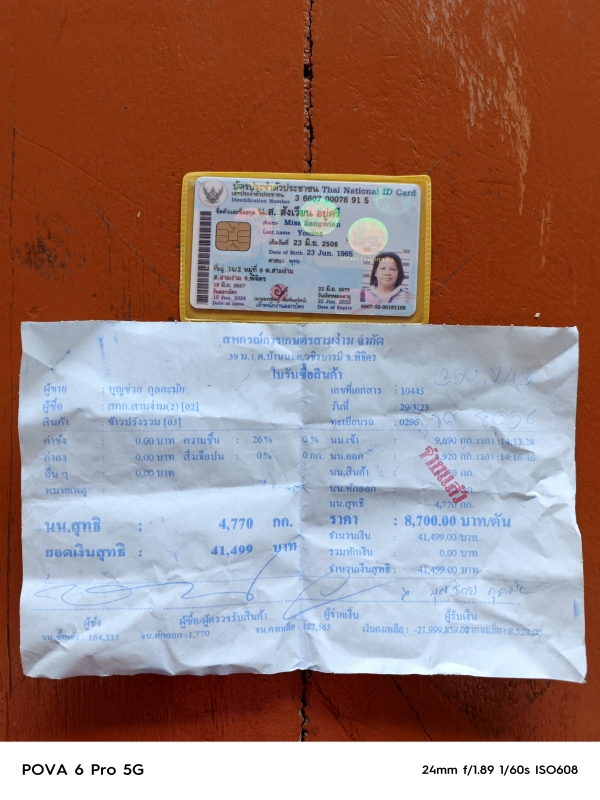 บัตรประจำตัวประชาชน Thai National ID Card
เลขประจำตัวประชาชน
Identification Number 3 6607 00078 91 5
ชื่อตัวและชื่อสกุล น.ส. สังเวียน อยู่ศรี
Name Miss Sangwian
Last name
เกิดวันที่ 23 มิ.ย. 2508
Date of Birth 23 Jun. 1965
ศาสนา พุทธ
ที่อยู่ หมู่ที่ 9 ต.สามง่าม
อ.สามง่าม จ.พิจิตร
19 มิ.ย. 2567
วันออกบัตร
19 Jun. 2024
Date of Issue
เจ้าพนักงานออกบัตร
22 มิ.ย. 2575
วันบัตรหมดอายุ
22 Jun. 2032
Date of Expiry
สหกรณ์การเกษตรสามง่าม จำกัด
39 ม.1 ต.บ้านนา อ.วชิรบารมี จ.พิจิตร
ใบรับซื้อสินค้า
ผู้ขาย : บุญช่วย กุลละมัย
เลขที่เอกสาร : 10445
ผู้ซื้อ : สกก.สามง่าม(2) [02]
วันที่ : 29/3/23
สินค้า : ข้าวปรังรวม [03]
ทะเบียนรถ : 0296
ค่าชั่ง : 0.00 บาท ความชื้น : 26% 0 %
นน.เข้า : 9,690 กก. เวลา :14:13:28
ค่าลง : 0.00 บาท สิ่งเจือปน : 0% 0 กก.
นน.ออก : 4,920 กก. เวลา :14:16:46
อื่น ๆ : 0.00 บาท
นน.สินค้า
หมายเหตุ :
นน.หักออก
นน.สุทธิ : 4,770 กก.
จ่ายแล้ว
นน.สุทธิ : 4,770 กก.
ราคา : 8,700.00 บาท/ตัน
จำนวนเงิน : 41,499.00 บาท
ยอดเงินสุทธิ : 41,499 บาท
รวมหักเงิน : 0.00 บาท
จำนวนเงินสุทธิ : 41,499.00 บาท
ผู้ชั่ง ผู้ซื้อ/ผู้ตรวจรับสินค้า ผู้จ่ายเงิน ผู้รับเงิน
ขน.หักออก : 1,770
POVA 6 Pro 5G
24mm f/1.89 1/60s ISO608